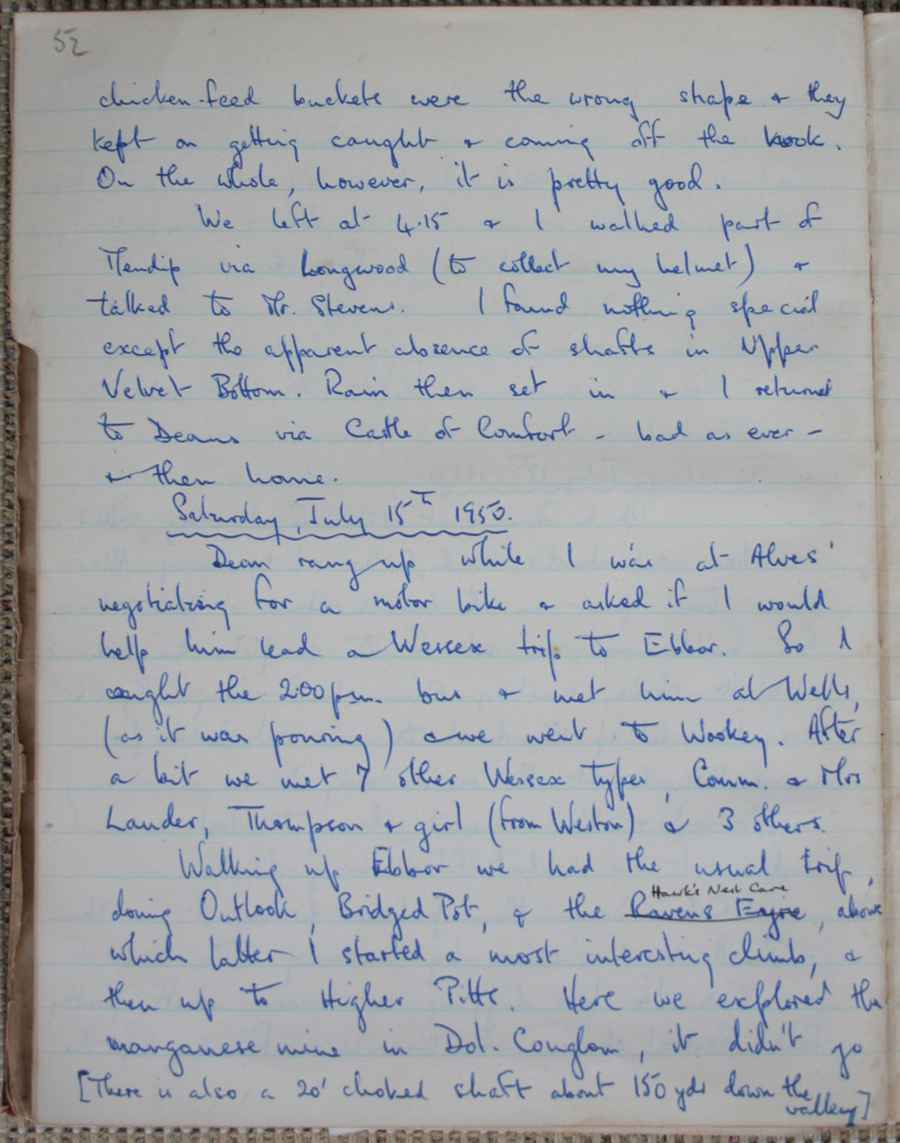 52
chicken-feed buckets were the wrong shape & they
kept on getting caught & coming off the hook.
On the whole, however, it is pretty good.
We left at 4.15 & I walked part of
Mendip via Longwood (to collect my helmet) &
talked to Mr. Stevens. I found nothing special
except the apparent absence of shafts in Upper
Velvet Bottom. Rain then set in & I returned
to Deans via Castle of Comfort - bad as ever -
& then home.
Saturday, July 15th 1950.
Dean rang up while I was at Alves'
negotiating for a motor bike & asked if I would
help him lead a Wessex trip to Ebbor. So I
caught the 2.00 p.m. bus & met him at Wells,
(as it was pouring) & we went to Wookey. After
a bit we met 7 other Wessex types, Comm. & Mrs
Lander, Thompson & girl (from Weston) & 3 others.
Walking up Ebbor we had the usual trip,
Hawk's Nest Cave
doing Outlook, Bridged Pot, & the Ravens Eyrie, above
which latter I started a most interesting climb, &
then up to Higher Pitts. Here we explored the
manganese mine in Dol. Conglom, it didn't go
[There is also a 20' choked shaft about 150 yds down the
valley]